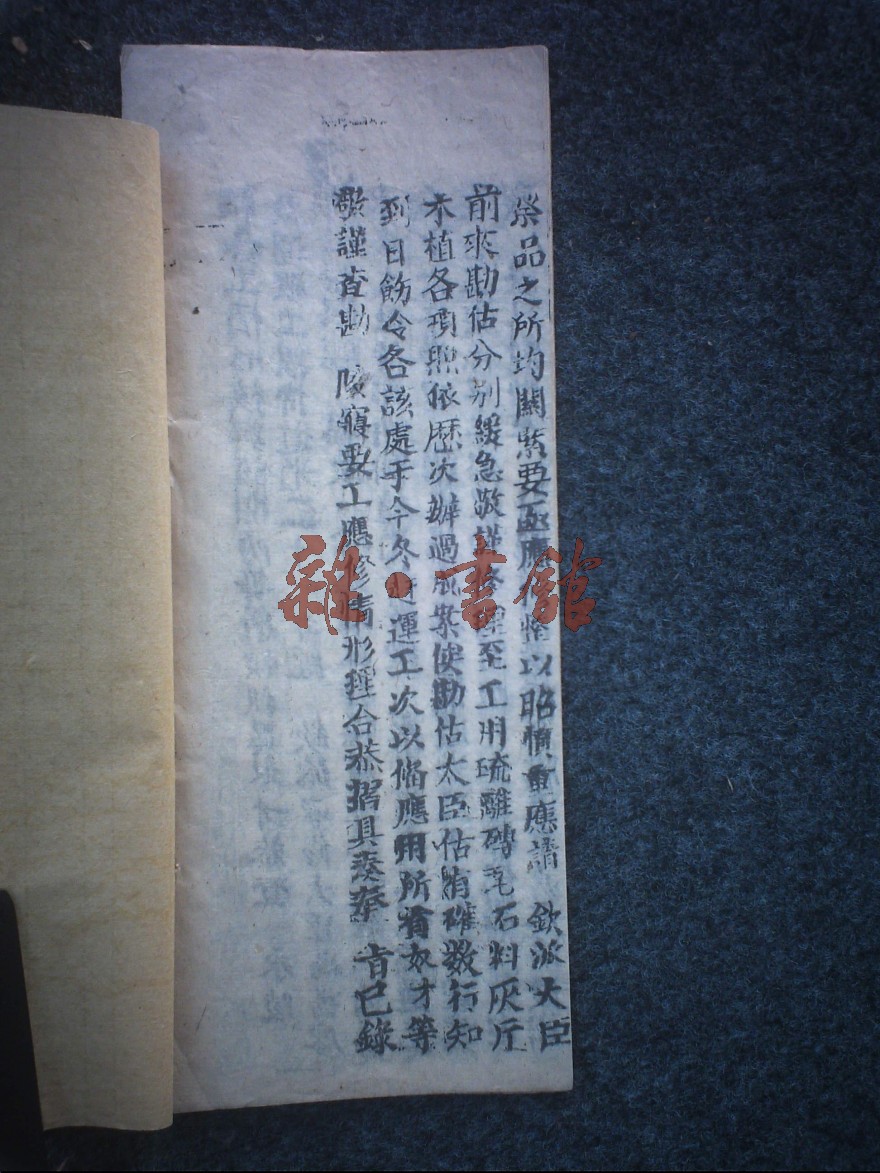 祭品之所均關緊要亟應修整以昭慎重應請 欽派大臣
前來勘估分別緩急敬謹修理至工用琉璃磚瓦石料灰斤
木植各項照依歷次辦過成案俟勘估大臣估有確數行知
到日飭令各該處于今冬趕運工次以俻應用所有奴才等
敬謹查勘 陵寢要工應修情形理合恭摺具奏奉 旨已錄
雜·書館